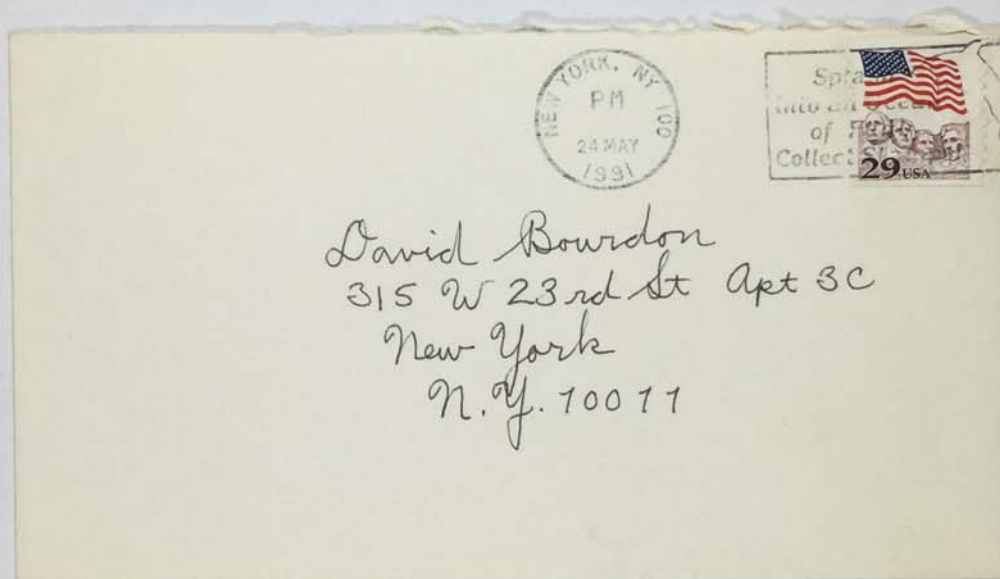 NEW YORK, NY 100
PM
24 MAY
1991
into an
of
Collect
29 USA
David Bourdon
315 W 23rd St Apt 3C
New York
N.Y. 10011